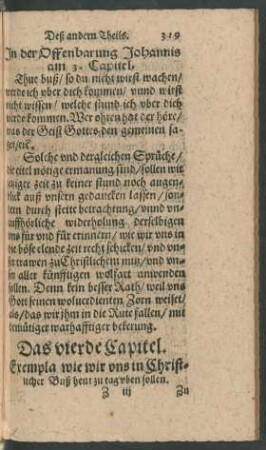 Deß andern Theils. 319
In der Offenbarung Johannis
am 3. Capitel.
Thue buß / so du nicht wirst wachen /
werde ich vber dich kommen / vnnd wirst
nicht wissen / welche stund ich vber dich
werde kommen. Wer ohren hat der höre /
was der Geist Gottes den gemeinen sa-
get / etc.
Solche vnd dergleichen Sprüche /
die eitel nötige ermanung sind / sollen wir
einiger zeit zu keiner stund noch augen-
blick auß vnsern gedancken lassen / son-
dern durch stette betrachtung / vnnd vn-
auffhörliche widerholung derselbigen
vns für vnd für erinnern / wie wir vns in
die böse elende zeit recht schicken / vnd vn-
ser trawen zu Christlichem nutz / vnd vn-
sern aller künfftigen wolfart anwenden
sollen. Denn kein besser Rath / weil vns
Gott seinen wolverdienten Zorn weiset /
als / das wir jhm in die Rute fallen / mit
demütiger warhafftiger bekerung.
Das vierde Capitel.
Exempla wie wir vns in Christ-
licher Buß heut zu tag vben sollen.
Z iij Zu